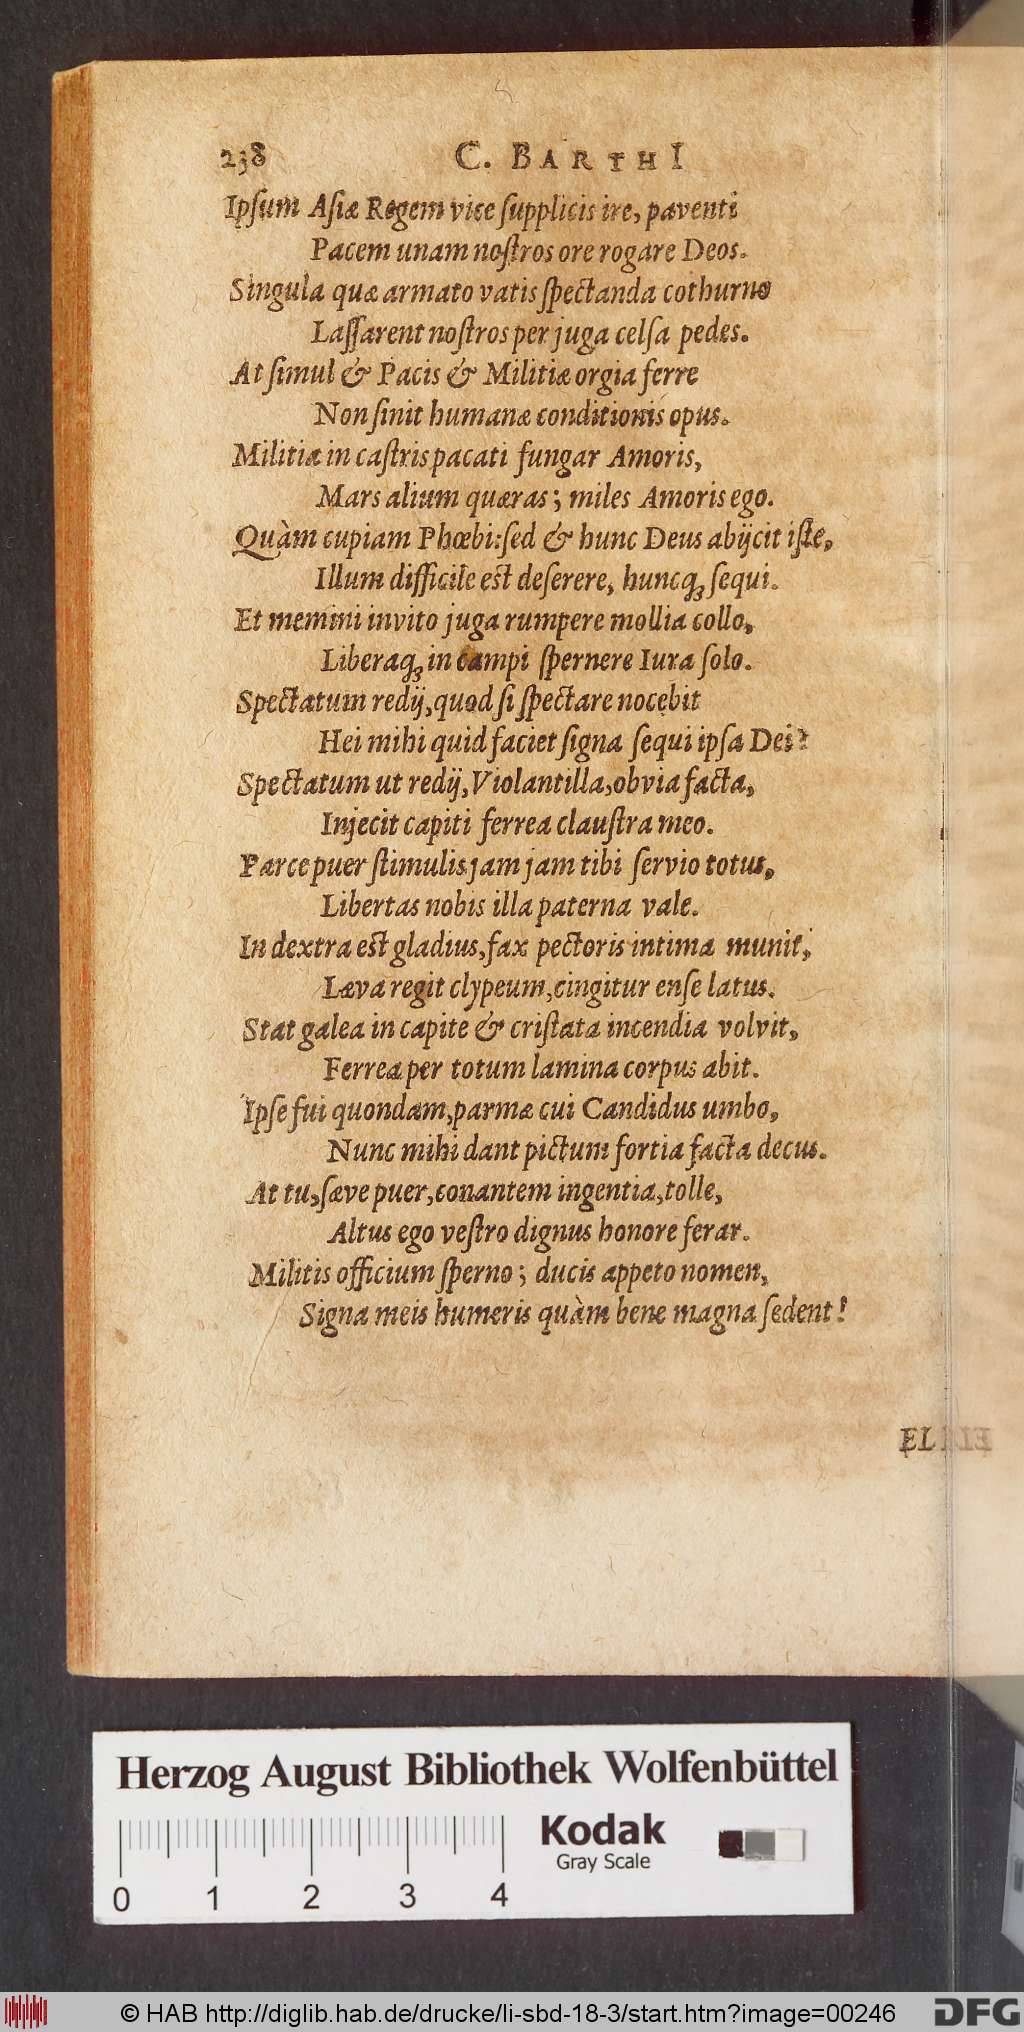 238 C. BARTHI
Ipſum Aſiæ Regem vice ſupplicis ire, paventi
Pacem unam noſtros ore rogare Deos.
Singula quæ armato vatis ſpectanda cothurno
Laſſarent noſtros per juga celſa pedes.
At ſimul & Pacis & Militiæ orgia ferre
Non ſinit humanæ conditionis opus.
Militiæ in caſtris pacati fungar Amoris,
Mars alium quæras; miles Amoris ego.
Quàm cupiam Phœbi: ſed & hunc Deus abijcit iſte,
Illum difficile est deſerere, huncq; ſequi.
Et memini invito juga rumpere mollia collo,
Liberaq; in campi ſpernere Iura ſolo.
Spectatum redij, quod ſi ſpectare nocebit
Hei mihi quid faciet ſigna ſequi ipſa Dei?
Spectatum ut redij, Violantilla, obvia facta,
Injecit capiti ferrea clauſtra meo.
Parce puer ſtimulis jam jam tibi ſervio totus,
Libertas nobis illa paterna vale.
In dextra est gladius, fax pectoris intima munit,
Læva regit clypeum, cingitur enſe latus.
Stat galea in capite & criſtata incendia volvit,
Ferrea per totum lamina corpus abit.
Ipſe fui quondam, parmæ cui Candidus umbo,
Nunc mihi dant pictum fortia facta decus.
At tu, ſæve puer, conantem ingentia, tolle,
Altus ego veſtro dignus honore ferar.
Militis officium ſperno; ducis appeto nomen,
Signa meis humeris quàm bene magna ſedent!
Herzog August Bibliothek Wolfenbüttel
Kodak
Gray Scale
0 1 2 3 4
© HAB http://diglib.hab.de/drucke/li-sbd-18-3/start.htm?image=00246
DFG